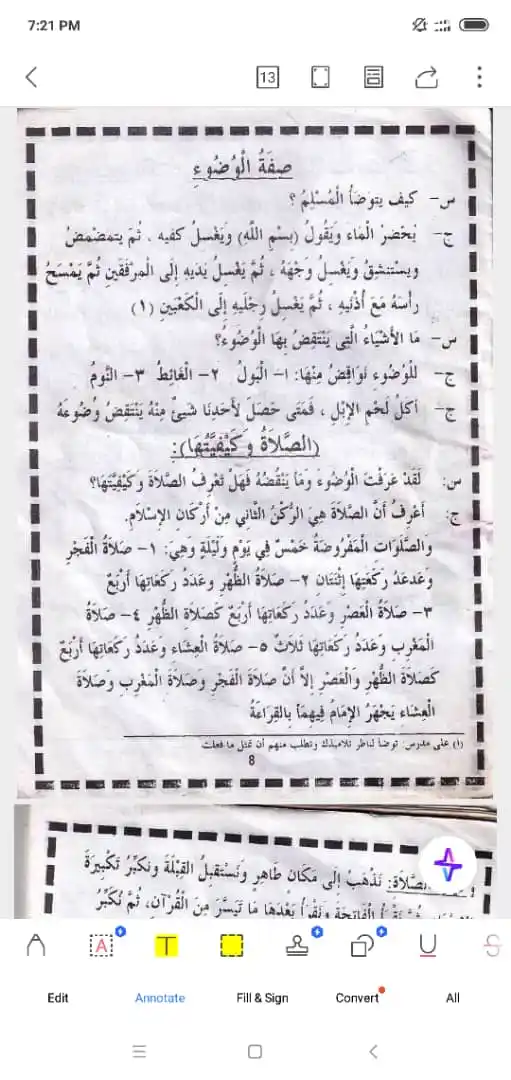 7:21 PM
13
صِفَةُ الْوُضُوءِ
س- كيف يتوضأ الْمُسْلِمُ ؟
ج- يُحْضِرُ الْمَاءَ وَيَقُولُ (بِسْمِ اللَّهِ) وَيَغْسِلُ كفيه ، ثُمَّ يتمضمضُ
ويستنشقُ وَيَغْسِلُ وَجْهَهُ ، ثُمَّ يَغْسِلُ يَدَيهِ إِلَى الْمِرفَقَينِ ثُمَّ يَمْسَحُ
رأسَهُ مَعَ أُذُنَيهِ ، ثُمَّ يَغْسِلُ رِجْلَيهِ إِلَى الْكَعْبَينِ (١)
س- مَا الأَشْيَاءُ الَّتِى يَنْتَقِضُ بِهَا الْوُضُوءُ؟
ج- لِلْوُضُوءِ نَوَاقِضُ مِنْهَا: ١- الْبَولُ ٢- الْغَائِطُ ٣- النَّومُ
ج- أَكْلُ لَحْمِ الإِبْلِ ، فَمَتَى حَصَلَ لأَحَدِنَا شَيئٌ مِنْهُ يَنْتَقِضُ وُضُوءُهُ
(الصَّلاَةُ وَكَيْفِيَّتُهَا):
س: لَقَدْ عَرَفْتَ الْوُضُوءَ وَمَا يَنْقُضُهُ فَهَلْ تَعْرِفُ الصَّلاَةَ وَكَيْفِيَّتَهَا؟
ج: أَعْرِفُ أَنَّ الصَّلاَةَ هِيَ الرُّكْنُ الثَّانِي مِنْ أَرْكَانِ الإِسْلاَمِ.
والصَّلَوَاتِ الْمَفْرُوضَةُ خَمْسٌ فِي يَوْمٍ وَلَيْلَةٍ وَهِيَ: ١- صَلاَةُ الْفَجْرِ
وَعَدَعَدُ رَكْعَتِهَا إِثْنَتَانِ ٢- صَلاَةُ الظُّهْرِ وَعَدَدُ رَكعَاتِهَا أَرْبَعٌ
٣- صَلاَةُ الْعَصْرِ وَعَدَدُ رَكعَاتِهَا أَرْبَعٌ كَصَلاَةِ الظُّهْرِ ٤- صَلاَةُ
الْمَغْرِبِ وَعَدَدُ رَكعَاتِهَا ثَلاَثٌ ٥- صَلاَةُ الْعِشَاءِ وَعَدَدُ رَكعَاتِهَا أَرْبَعٌ
كَصَلاَةِ الظُّهْرِ وَالْعَصْرِ إِلاَّ أَنَّ صَلاَةَ الْفَجْرِ وصَلاَةَ الْمَغْرِبِ وصَلاَةَ
الْعِشَاءِ يَجْهَرُ الإِمَامُ فِيهِمَا بِالقِرَاءَةُ
(١) على مدرس: توضأ لناظر تلاميذك وتطلب منهم أن تمثل ما فعلت
8
الصَّلاَةِ: نَذْهَبُ إِلَى مَكَانٍ طَاهِرٍ وَنَسْتَقْبِلُ الْقِبْلَةَ وَنُكَبِّرُ تَكْبِيرَةَ
الْفَاتِحَةَ وَنَقْرَأُ بَعْدَهَا مَا تَيَسَّرَ مِنَ الْقُرْآنِ، ثُمَّ نُكَبِّرُ
Edit
Annotate
Fill & Sign
Convert
All